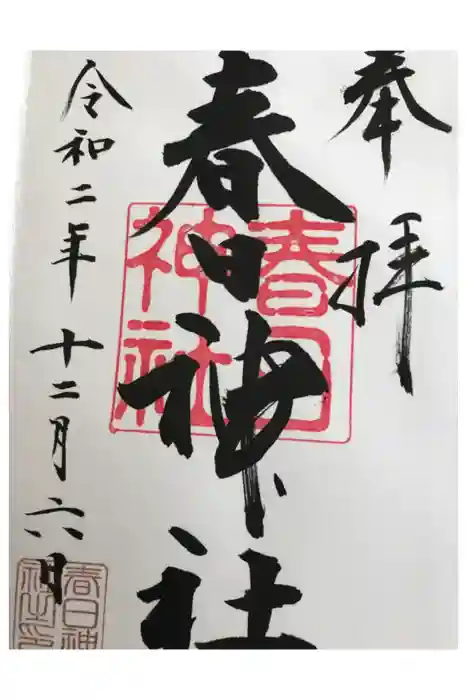 奉拝
春日神社
令和二年十二月六日
春日
神社
春日神
社之印